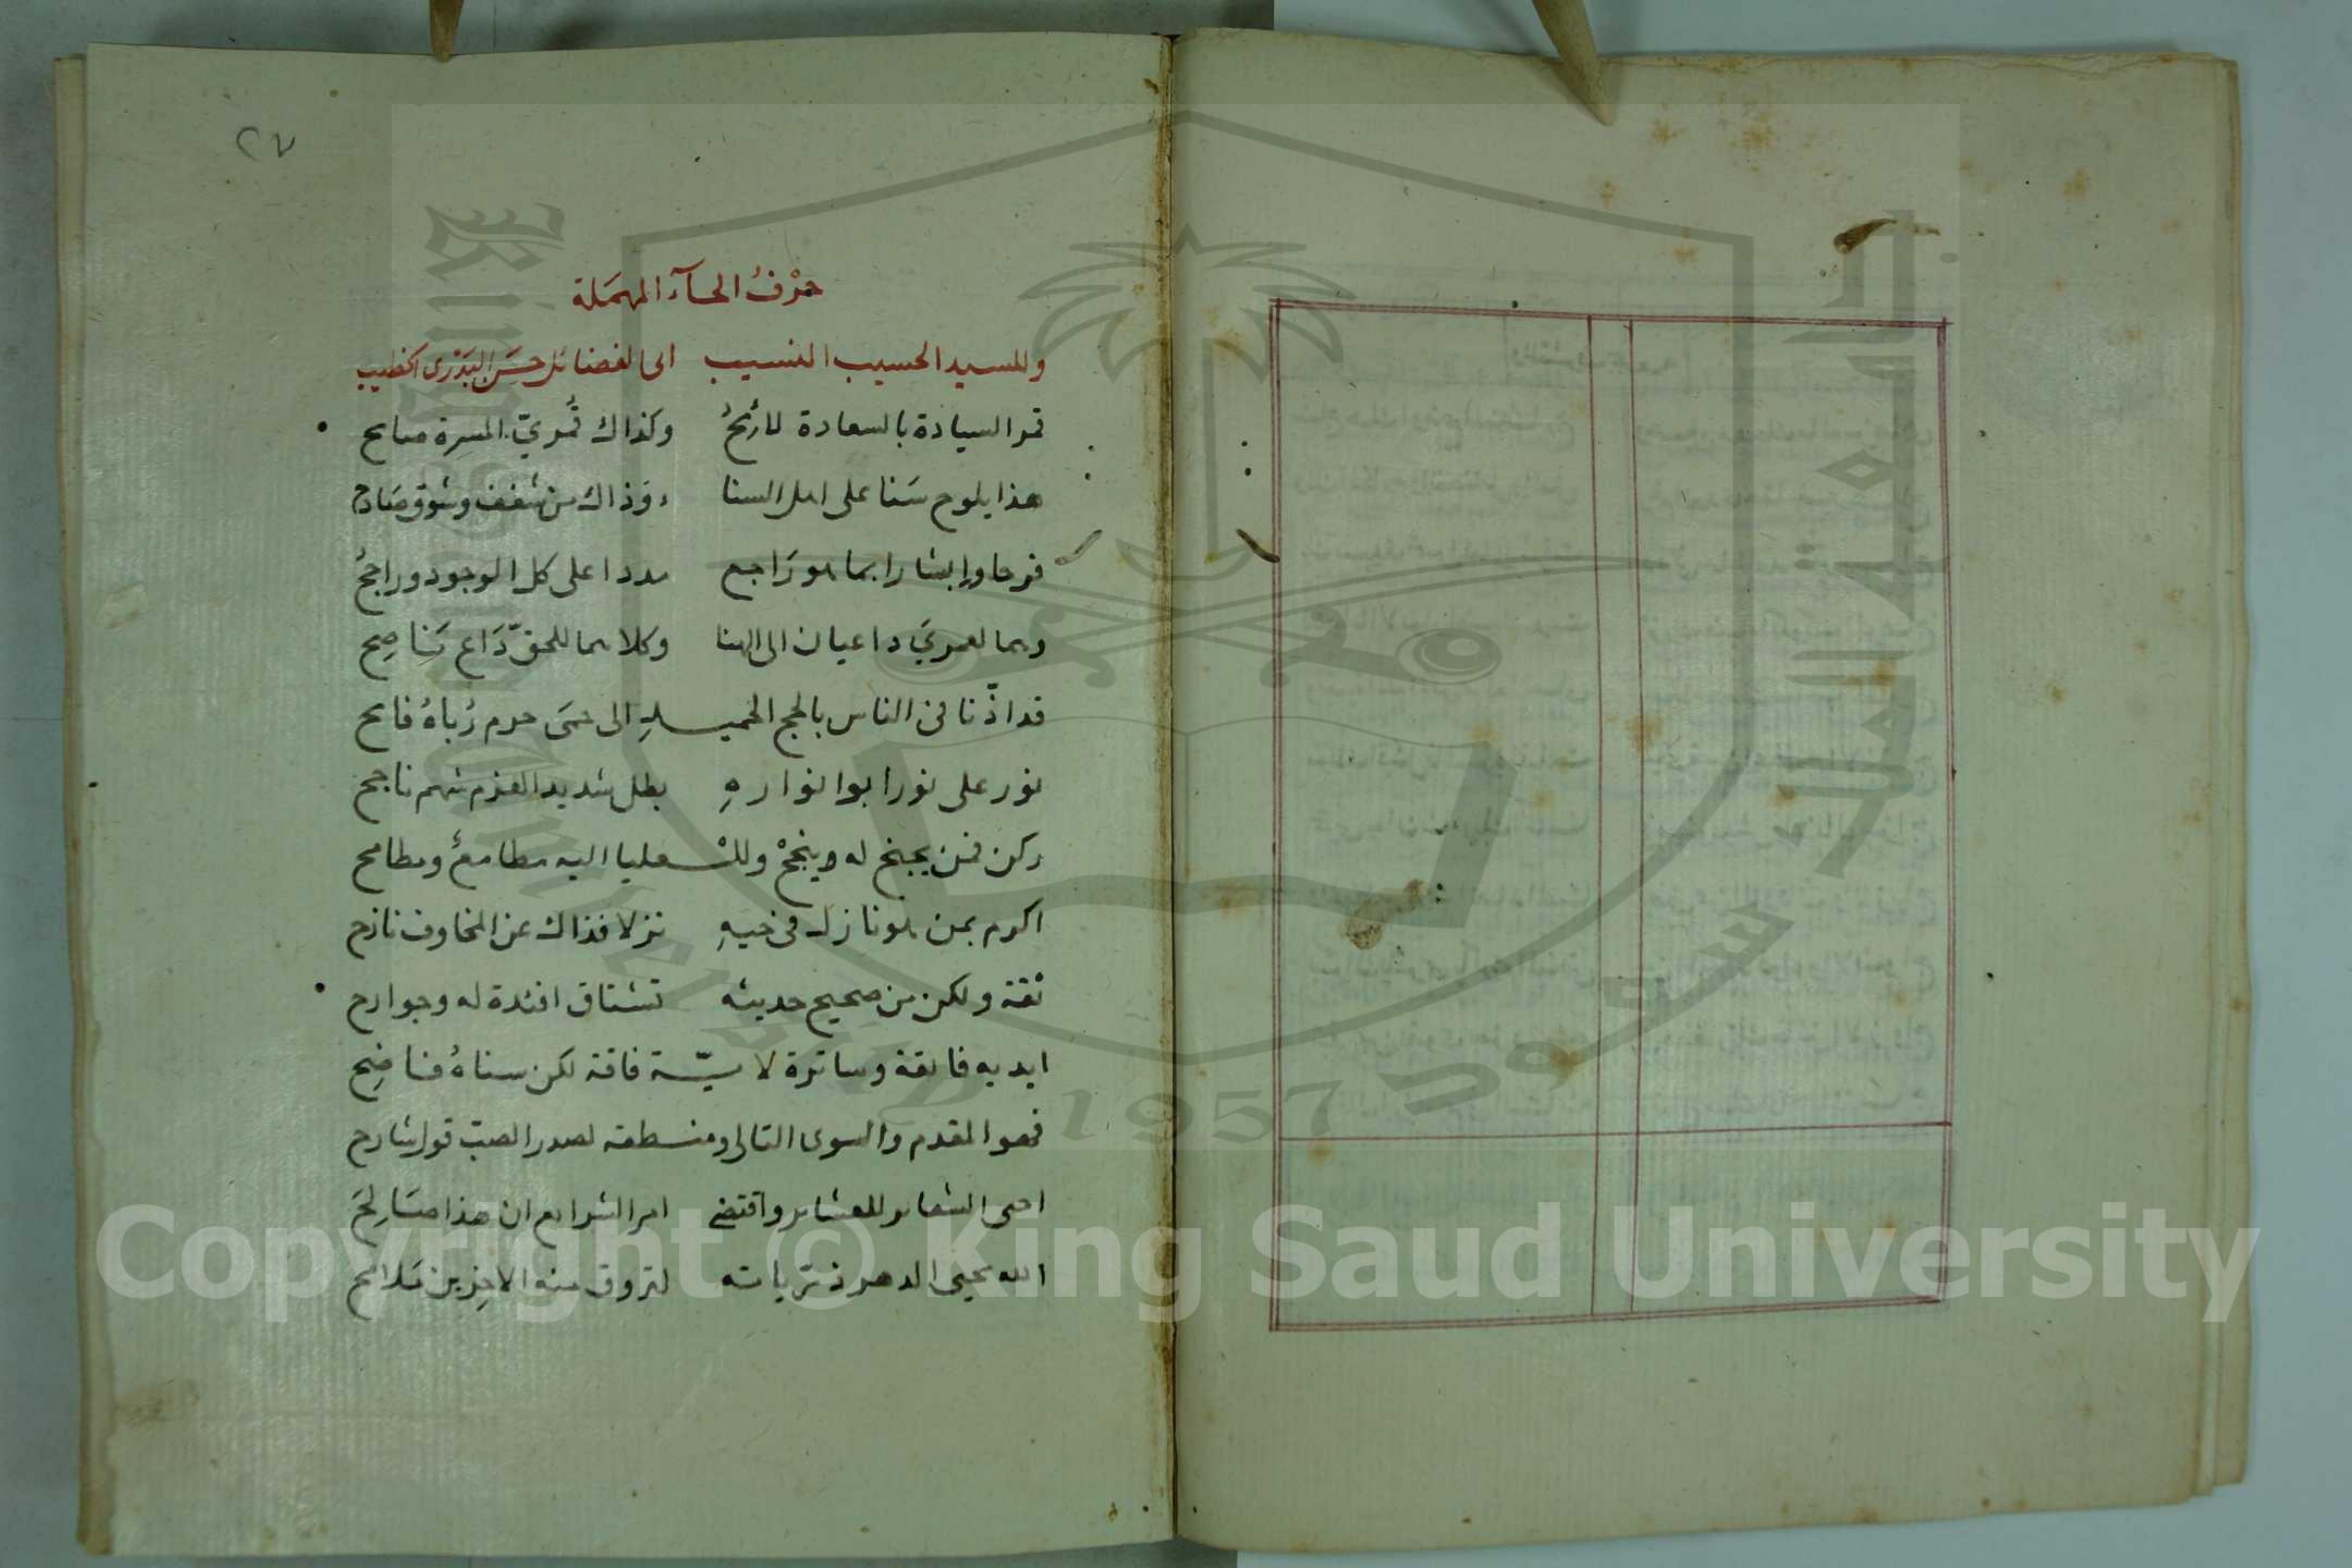 ٢٧
حَرْفُ الحآء المهمَلة
وللسيد الحسيب النسيب ابى الفضائل حسَن البَدْرى الخطيب
قمر السيادة بالسعادة لائحُ وكذاك قُمريّ المسرة صايح
هذا يلوح سَنا على اهل السنا وذاك من شغف وشوق صَادح
فرحا وابشارا بما هو رَاجع مددا على كل الوجود وراجحُ
وهما لعمريَ داعيان الى الهنا وكلاهما للحقّ دَاع نَاصِح
قد اذّنا فى الناس بالحج الجميلِ الى حمَى حرم رُباهُ فايح
نور على نور ابو انوارهِ بطل شديد العزم شهم ناجح
ركن فمن يجنح له وينجحْ وللعليا اليه مطامعٌ ومطامح
اكرم بمن هو نازل فى حيهِ نزلا فذاك عن المخاوف نازح
ثقة ولكن من صحيح حديثه تشتاق افئدة له وجوارح
ايديه فائقة وساترة لاية فاقة لكن سناهُ فاضِح
فهو المقدم والسوى التالى ومنطقه لصدر الصبّ قول شارح
احى الشعاير للعشاير واقتضى امر الشرايع ان هذا صَالِحَ
الله يحيى الدهر ذريانه لتروق منه الاخرين
Copyright © King Saud University
1957